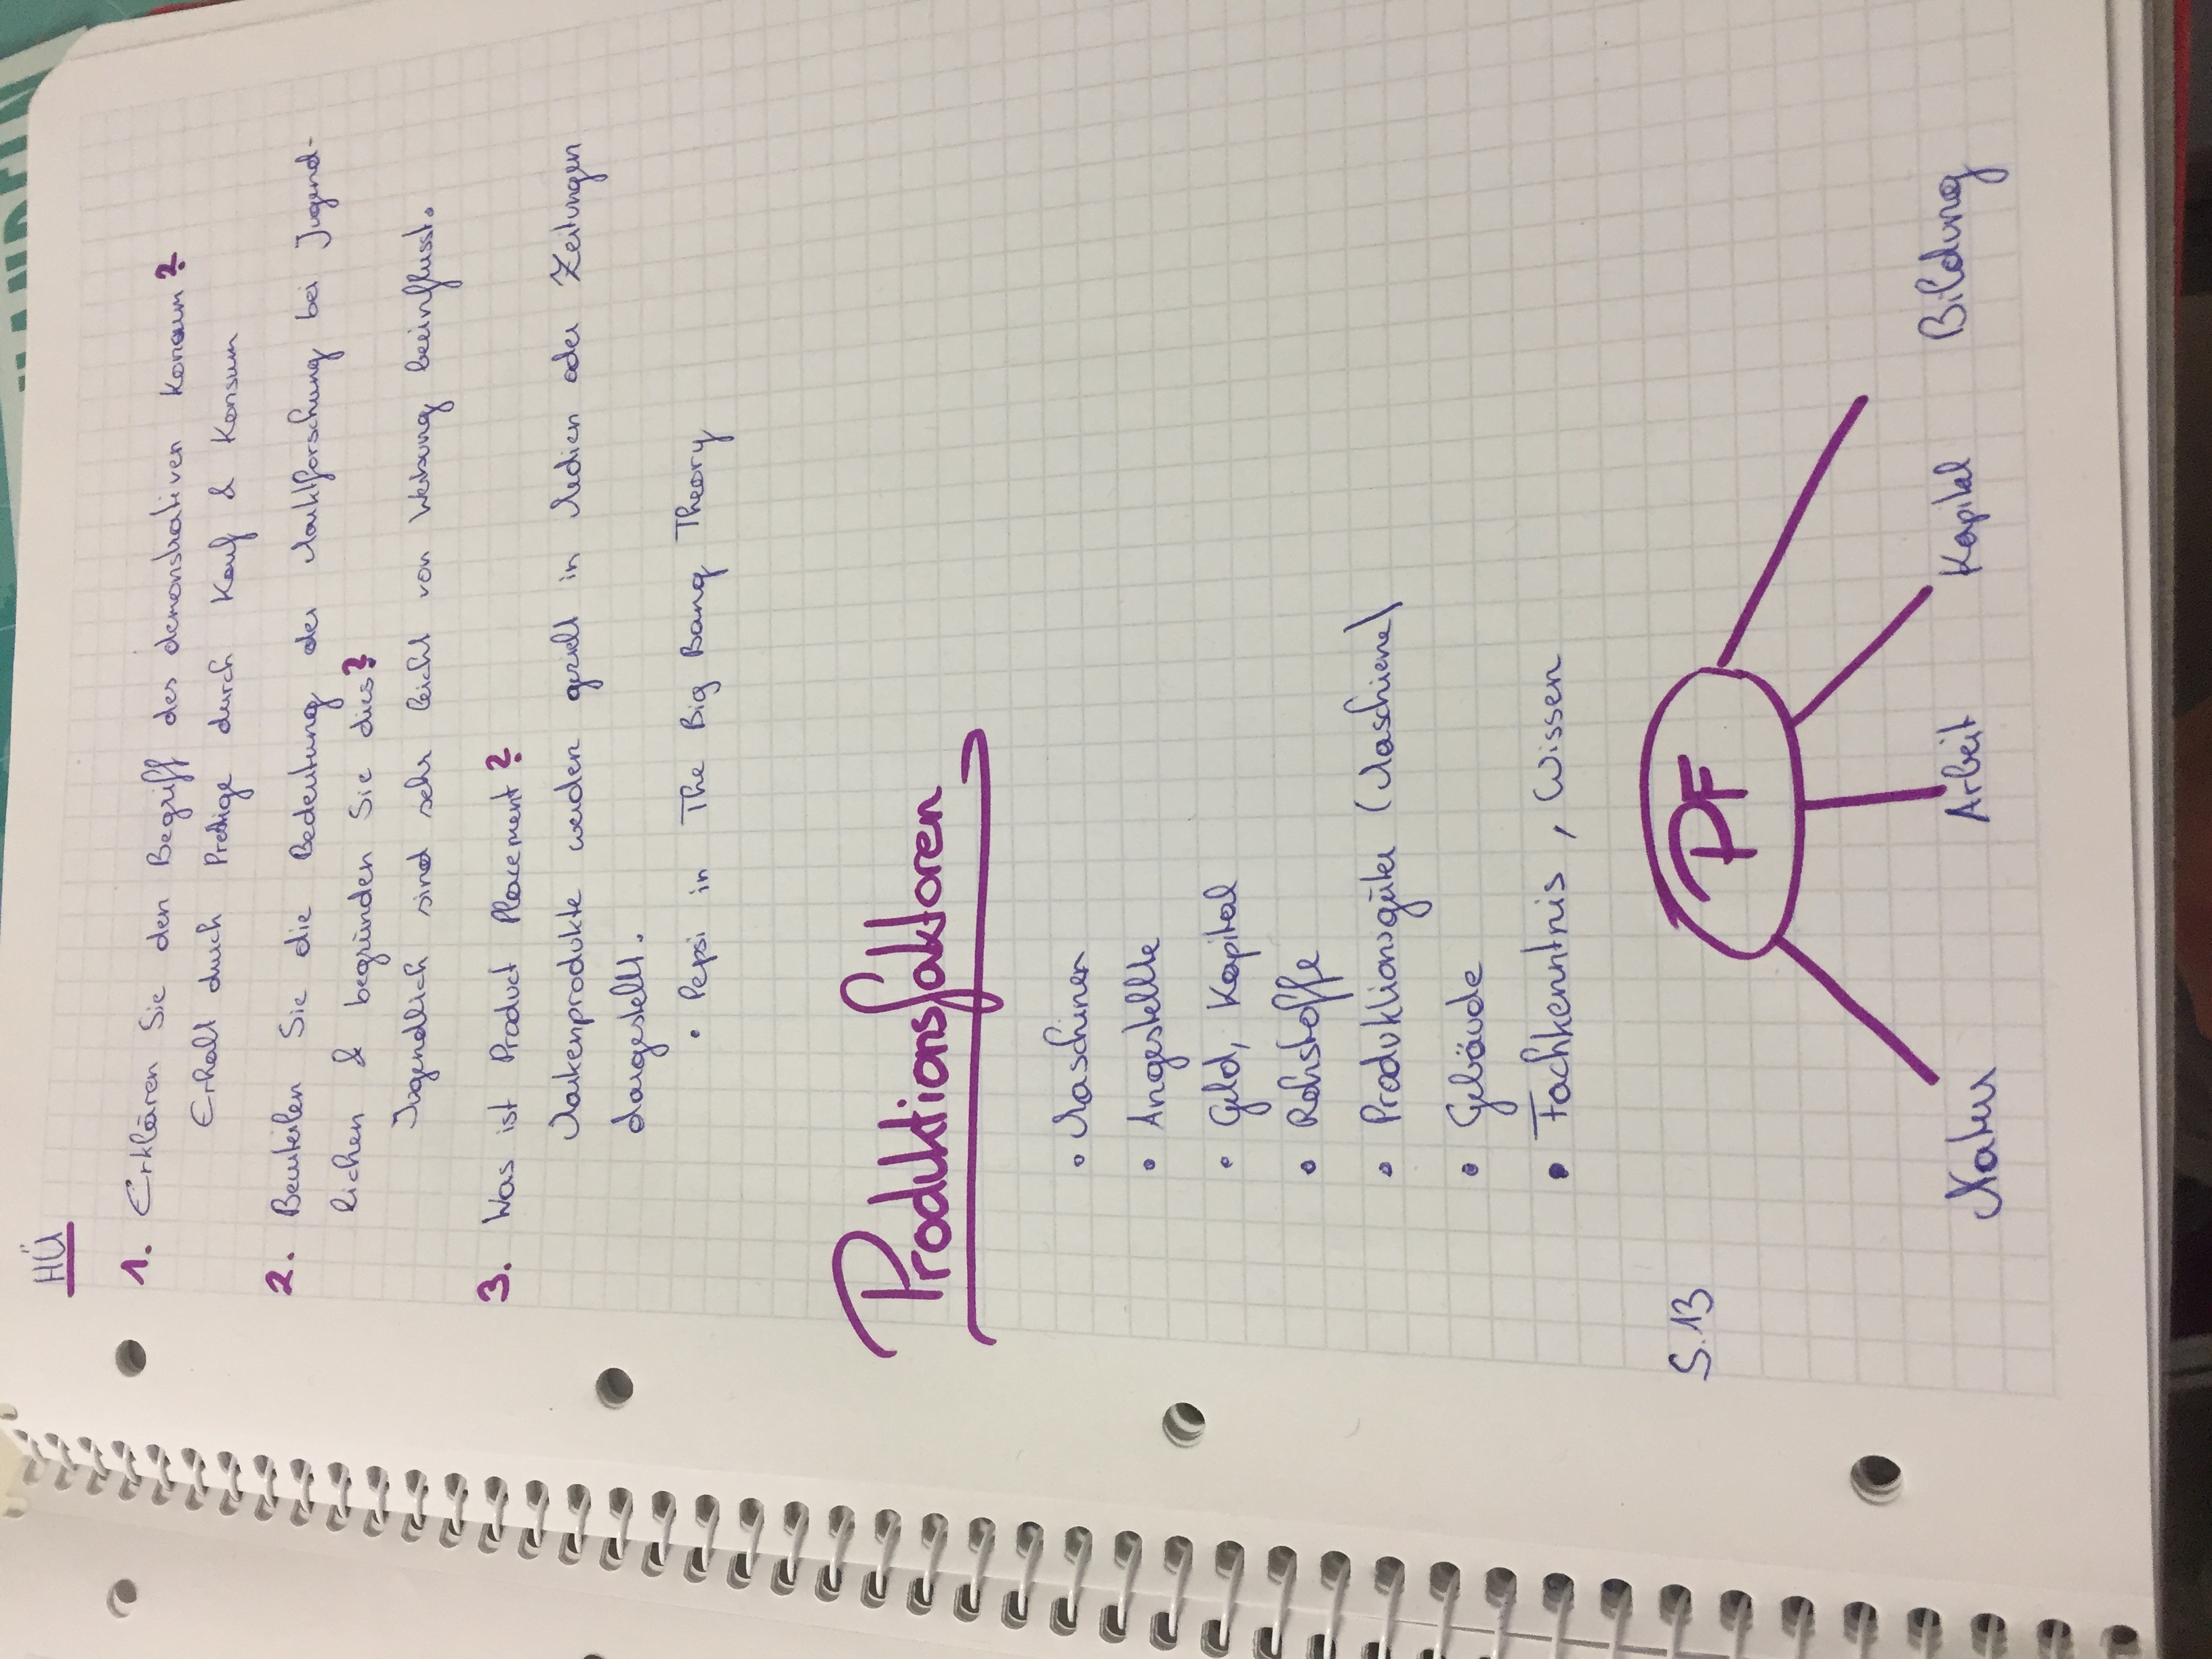 HANDELN
HÜ
1. Erklären Sie den Begriff des demonstrativen Konsum?
Erhalt durch Prestige durch Kauf & Konsum
2. Beurteilen Sie die Bedeutung der Marktforschung bei Jugend-
lichen & begründen Sie dies?
Jugendlich sind sehr leicht von Werbung beeinflusst.
3. Was ist Product Placement?
Markenprodukte werden gezielt in Medien oder Zeitungen
dargestellt.
• Pepsi in The Big Bang Theory
Produktionsfaktoren
• Maschinen
• Angestellte
• Geld, Kapital
• Rohstoffe
• Produktionsgüter (Maschiene)
• Gebäude
• Fachkenntnis, Wissen
S. 13
PF
Natur Arbeit Kapital Bildung